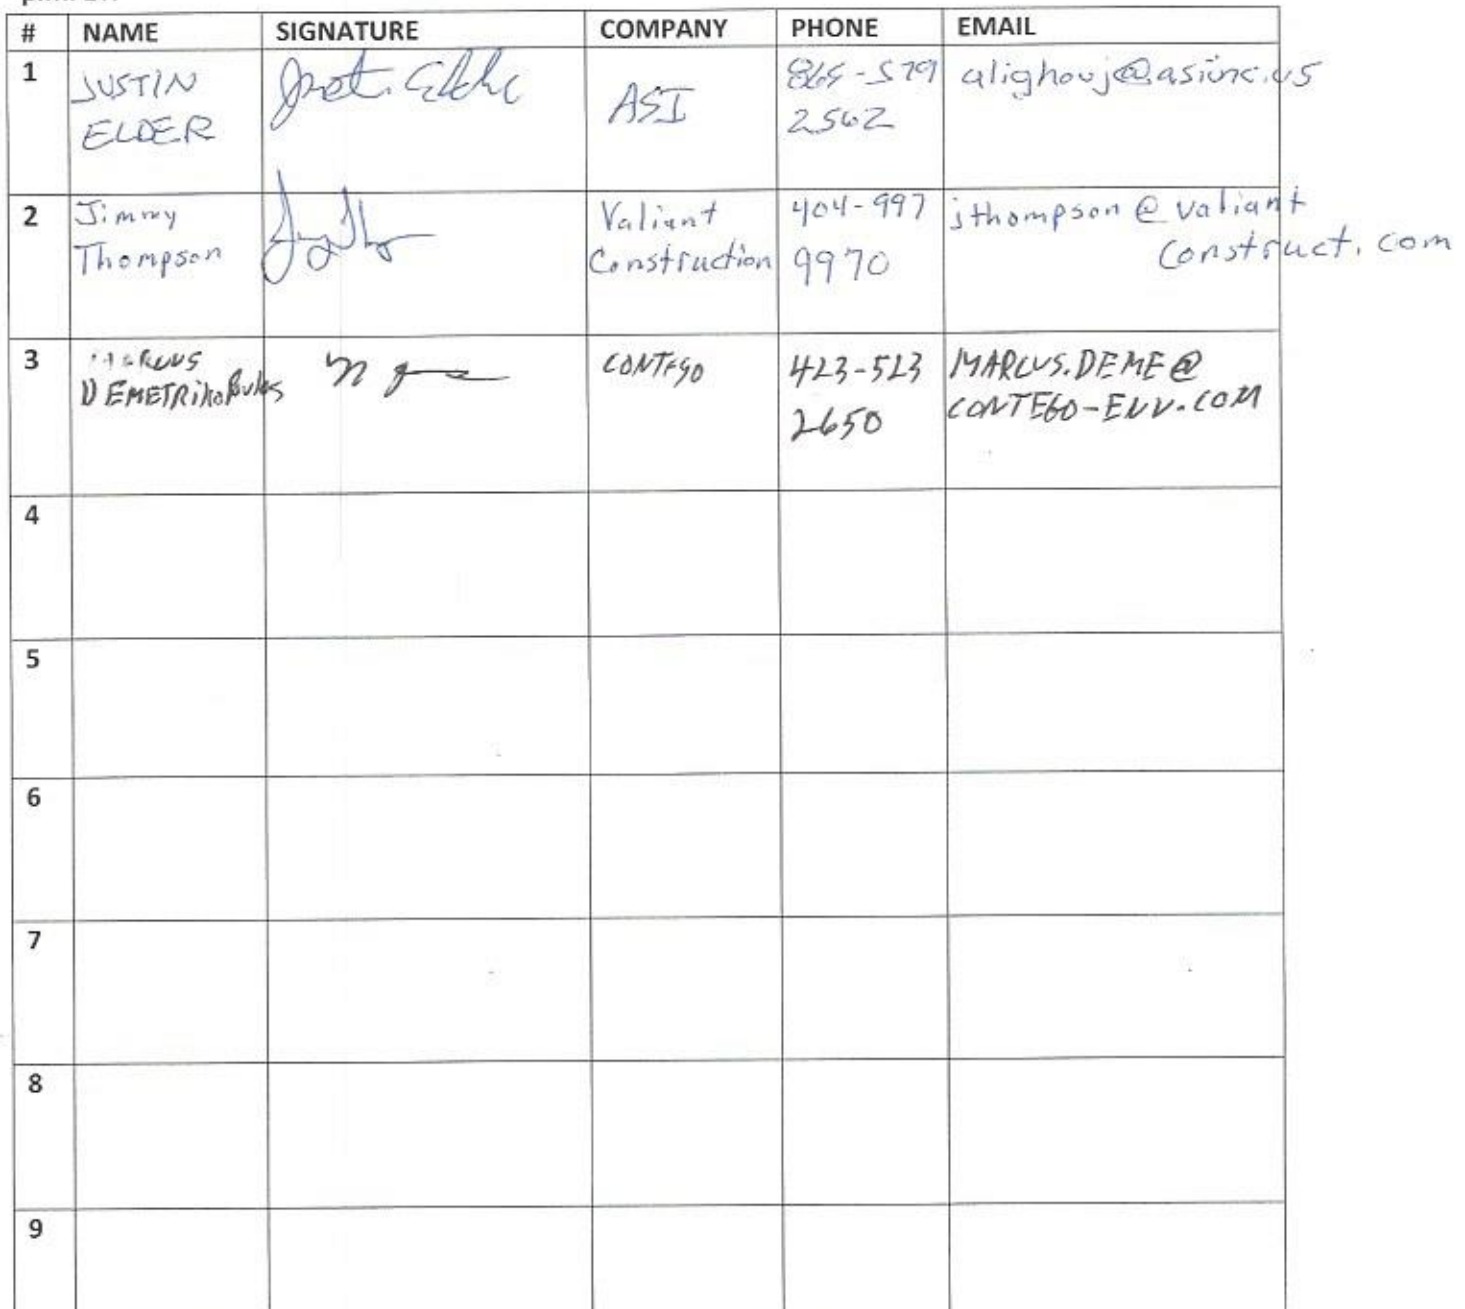 # NAME SIGNATURE COMPANY PHONE EMAIL
1
JUSTIN
ELDER
ASI
865-579
2562
alighouj@asiinc.us
2
Jimmy
Thompson
Valiant
Construction
404-997
9970
jthompson@valiant
construct.com
3
MARCUS
CONTEGO
423-513
2650
MARCUS.DEME@
CONTEGO-ENV.COM
4
5
6
7
8
9